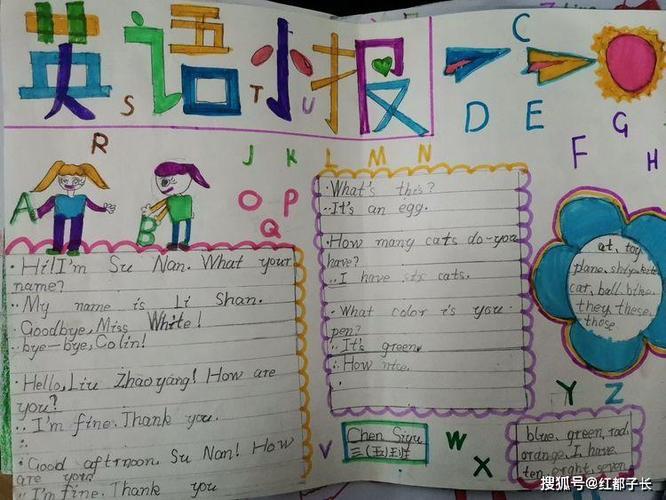 英语小报
C
S
T
U
D
E
G
F
H
R
J
K
L
M
N
A
B
O
P
Q
·Hi!I'm Su Nan. What your
name?
·My name is Li Shan.
·Goodbye, Miss White!
·bye-bye, Colin!
·Hello, Liu Zhaoyang! How are
you?
·I'm fine. Thank you.
·Good afternoon. Su Nan! How
are you?
·I'm fine. Thank you
·What's this?
·It's an egg.
·How many cats do you
have?
·I have six cats.
·What color is you
pen?
·It's green.
·How nice.
at, toy
plane, ship, kite
cat, ball, bike,
they, these,
those
Y
Z
V
Chen Siyu
三(五)班
W
X
blue, green, red,
orange, I, have,
ten, eight, seven
搜狐号@红都子长